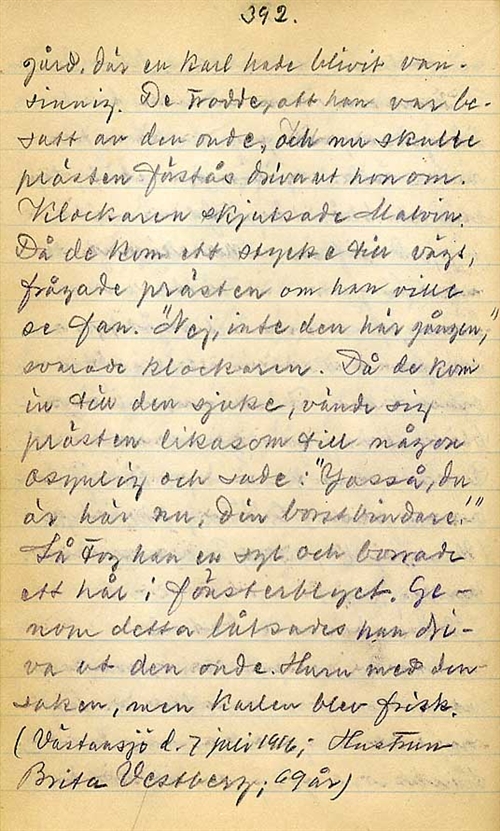 392.
gård, där en karl hade blivit van-
sinnig. De trodde, att han var be-
satt av den onde, och nu skulle
prästen förstås driva ut honom.
Klockaren skjutsade Malvin.
Då de kom ett stycke till vägs,
frågade prästen om han ville
se fan. "Nej, inte den här gången,"
svarade klockaren. Då de kom
in till den sjuke, vände sig
prästen likasom till någon
osynlig och sade: "Jasså, du
är här nu, Din borstbindare!"
Så tog han en syl och borrade
ett hål i fönsterblyet. Ge-
nom detta låtsades han dri-
va ut den onde. Huru med den
saken, men karlen blev frisk.
(Västansjö d. 7 juli 1916; Hustrun
Brita Vestberg; 69 år)